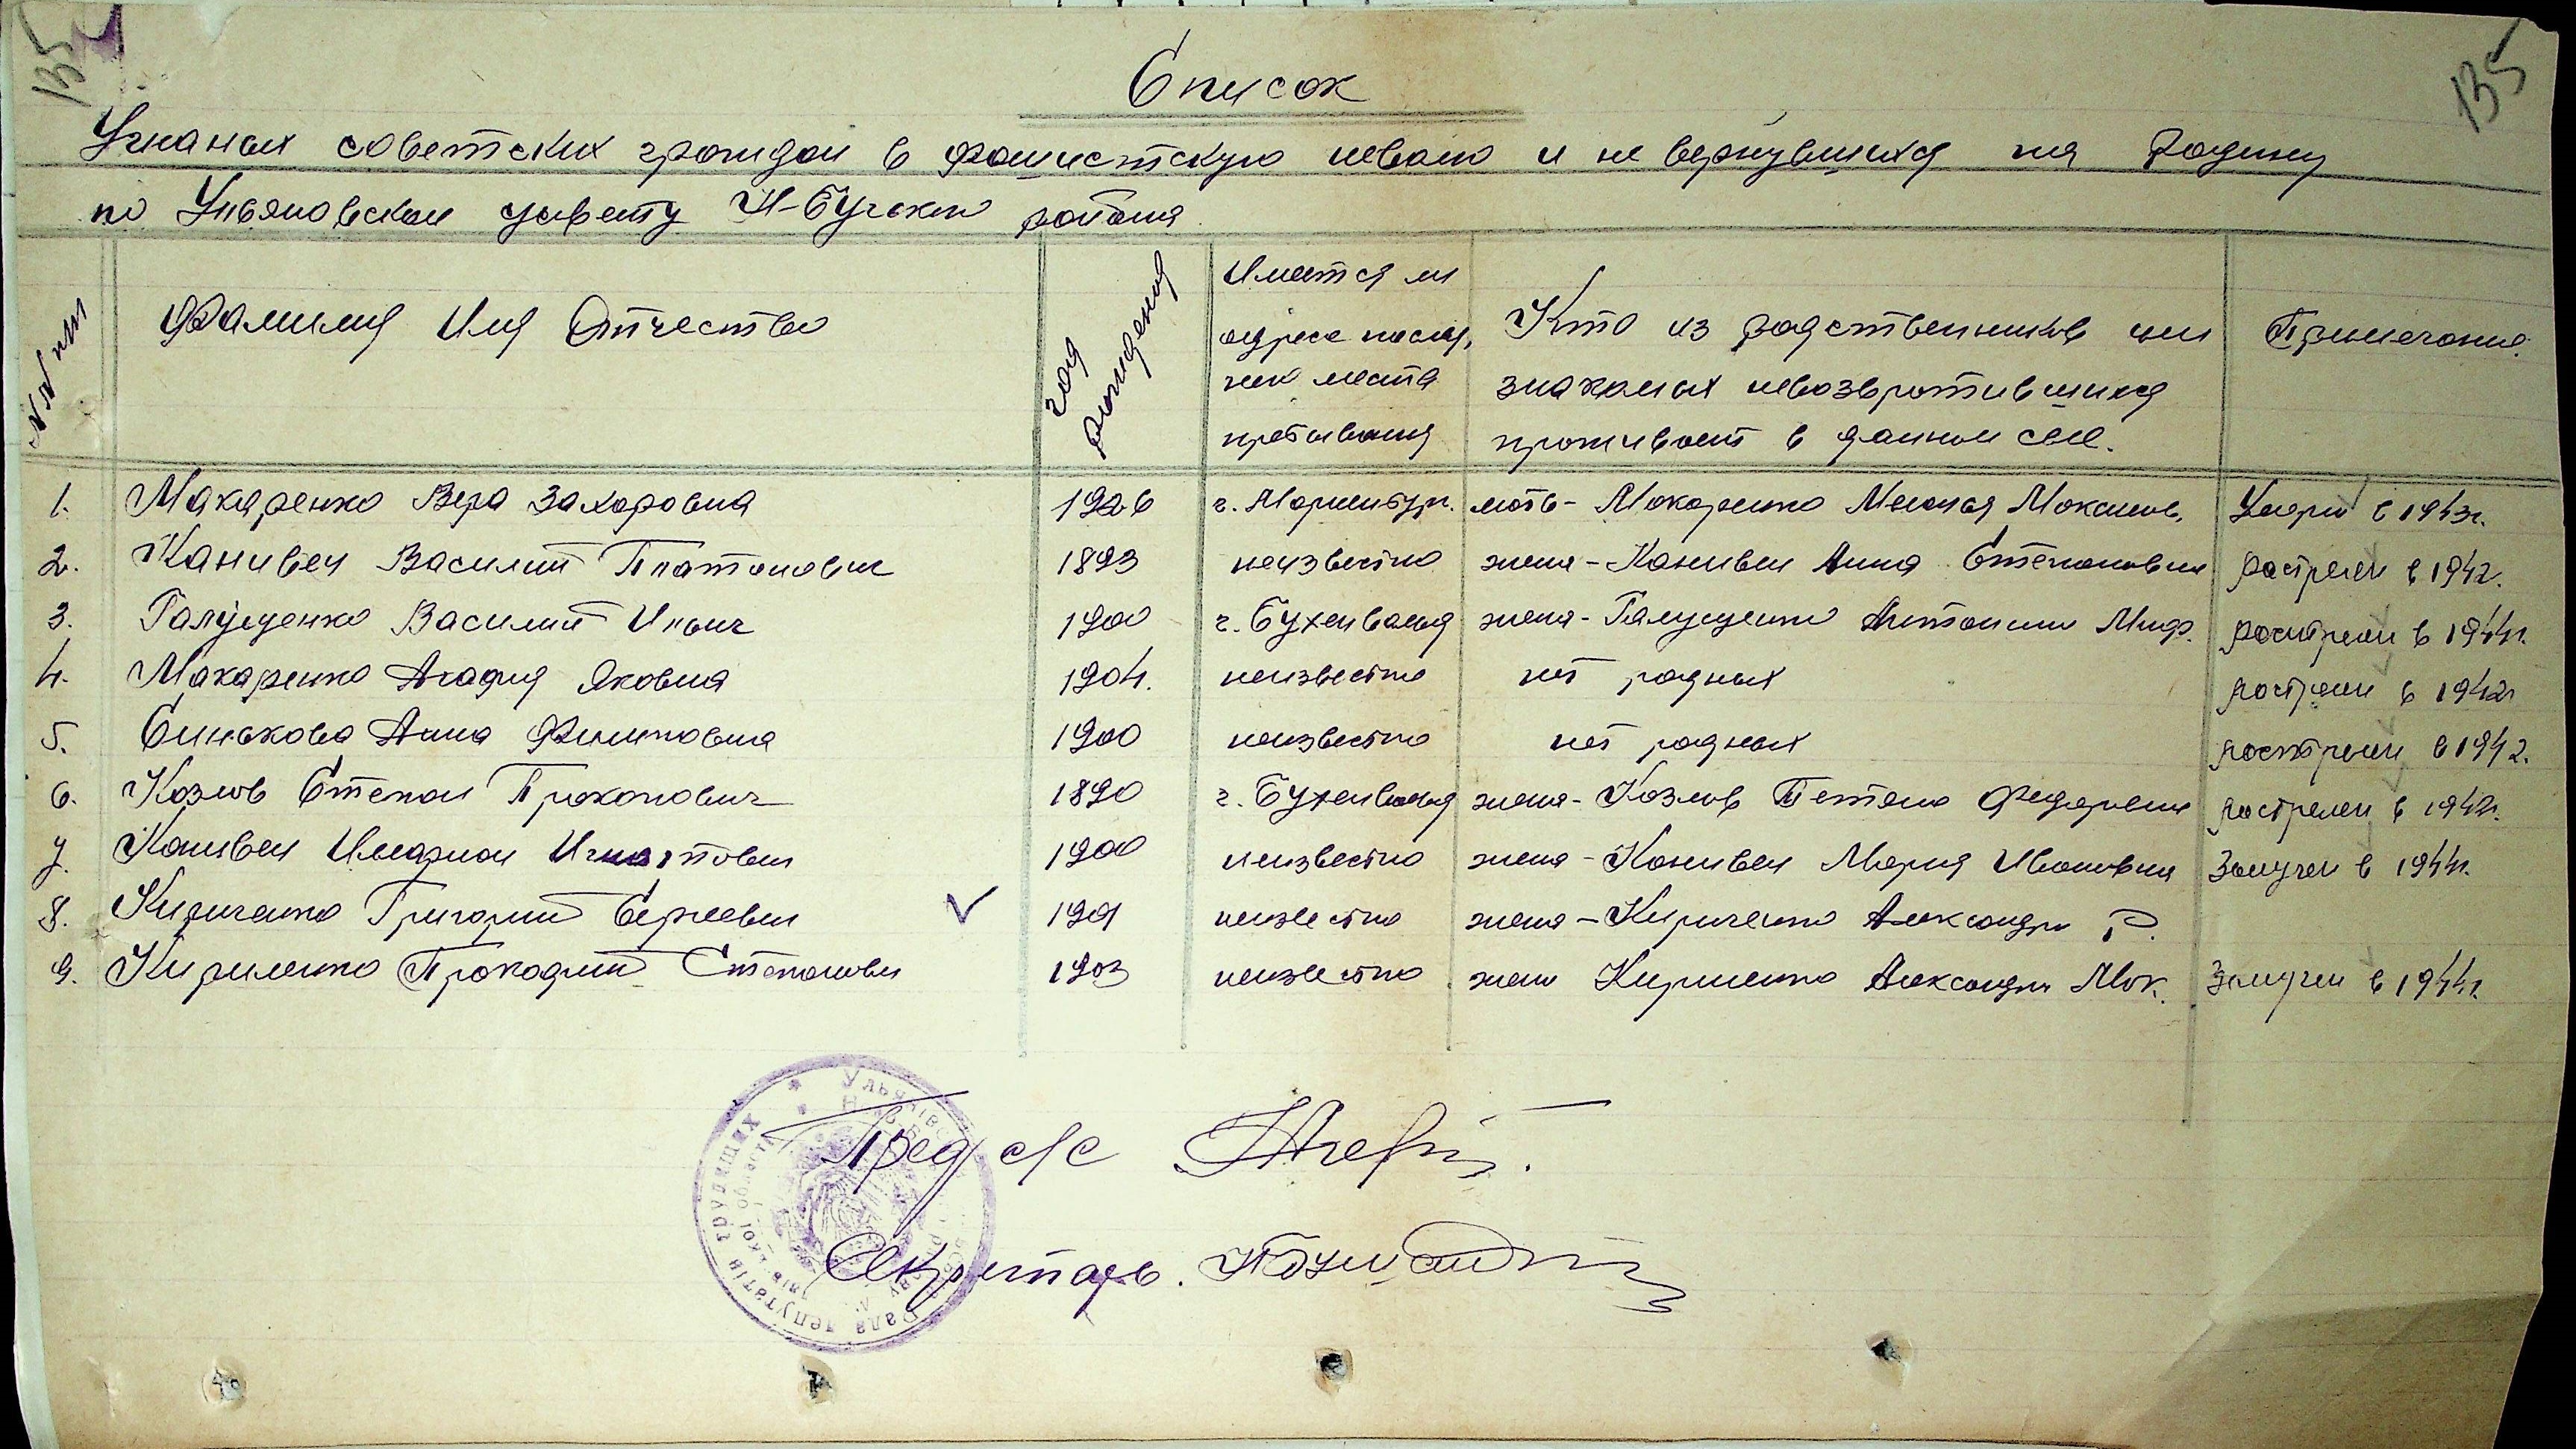 135
135
Список
Угнаных советских граждан в фашистскую неволю и не вернувшихся на Родину
по Ульяновском с/совету Н-Бугского района
№№ п/п
Фамилия Имя Отчество
год рождения
Имеется ли
адрес послед,
него места
пребывания
Кто из родственников или
знакомых невозвротившихся
проживает в данном селе.
Примечание.
1. Макаренко Вера Захаровна 1926 г. Мариенбург. мать - Макаренко Максимов, Умерла в 1943г.
2. Канивец Василий Платонович 1893 неизвестно жена - Канивец Анна Степановна растрелен в 1942.
3. Галущенко Василий Ильич 1900 г. Бухенвальд жена - Галущенко Антонина Миф. растрелен в 1944г.
4. Макаренко Агафия Яковна 1904. неизвестно нет родных растрелен в 1942г
5. Синькова Анна Филиповна 1900 неизвестно нет родных растрелен в 1942.
6. Козлов Степан Прокопович 1890 г. Бухенвальд жена - Козлов Тетяна Федоровна растрелен в 1942г.
7. Канивец Иларион Игнатович 1900 неизвестно жена - Канивец Мария Ивановна Замучен в 1944г.
8. Кириченко Григорий Сергеевич ✓ 1901 неизвестно жена - Кириченко Александра Р.
9. Кириленко Прокофий Степанович 1903 неизвестно жена Кириленко Александра Мак. Замучен в 1944г.
Пред с/с
Секретарь.
Рада депутатів трудящих